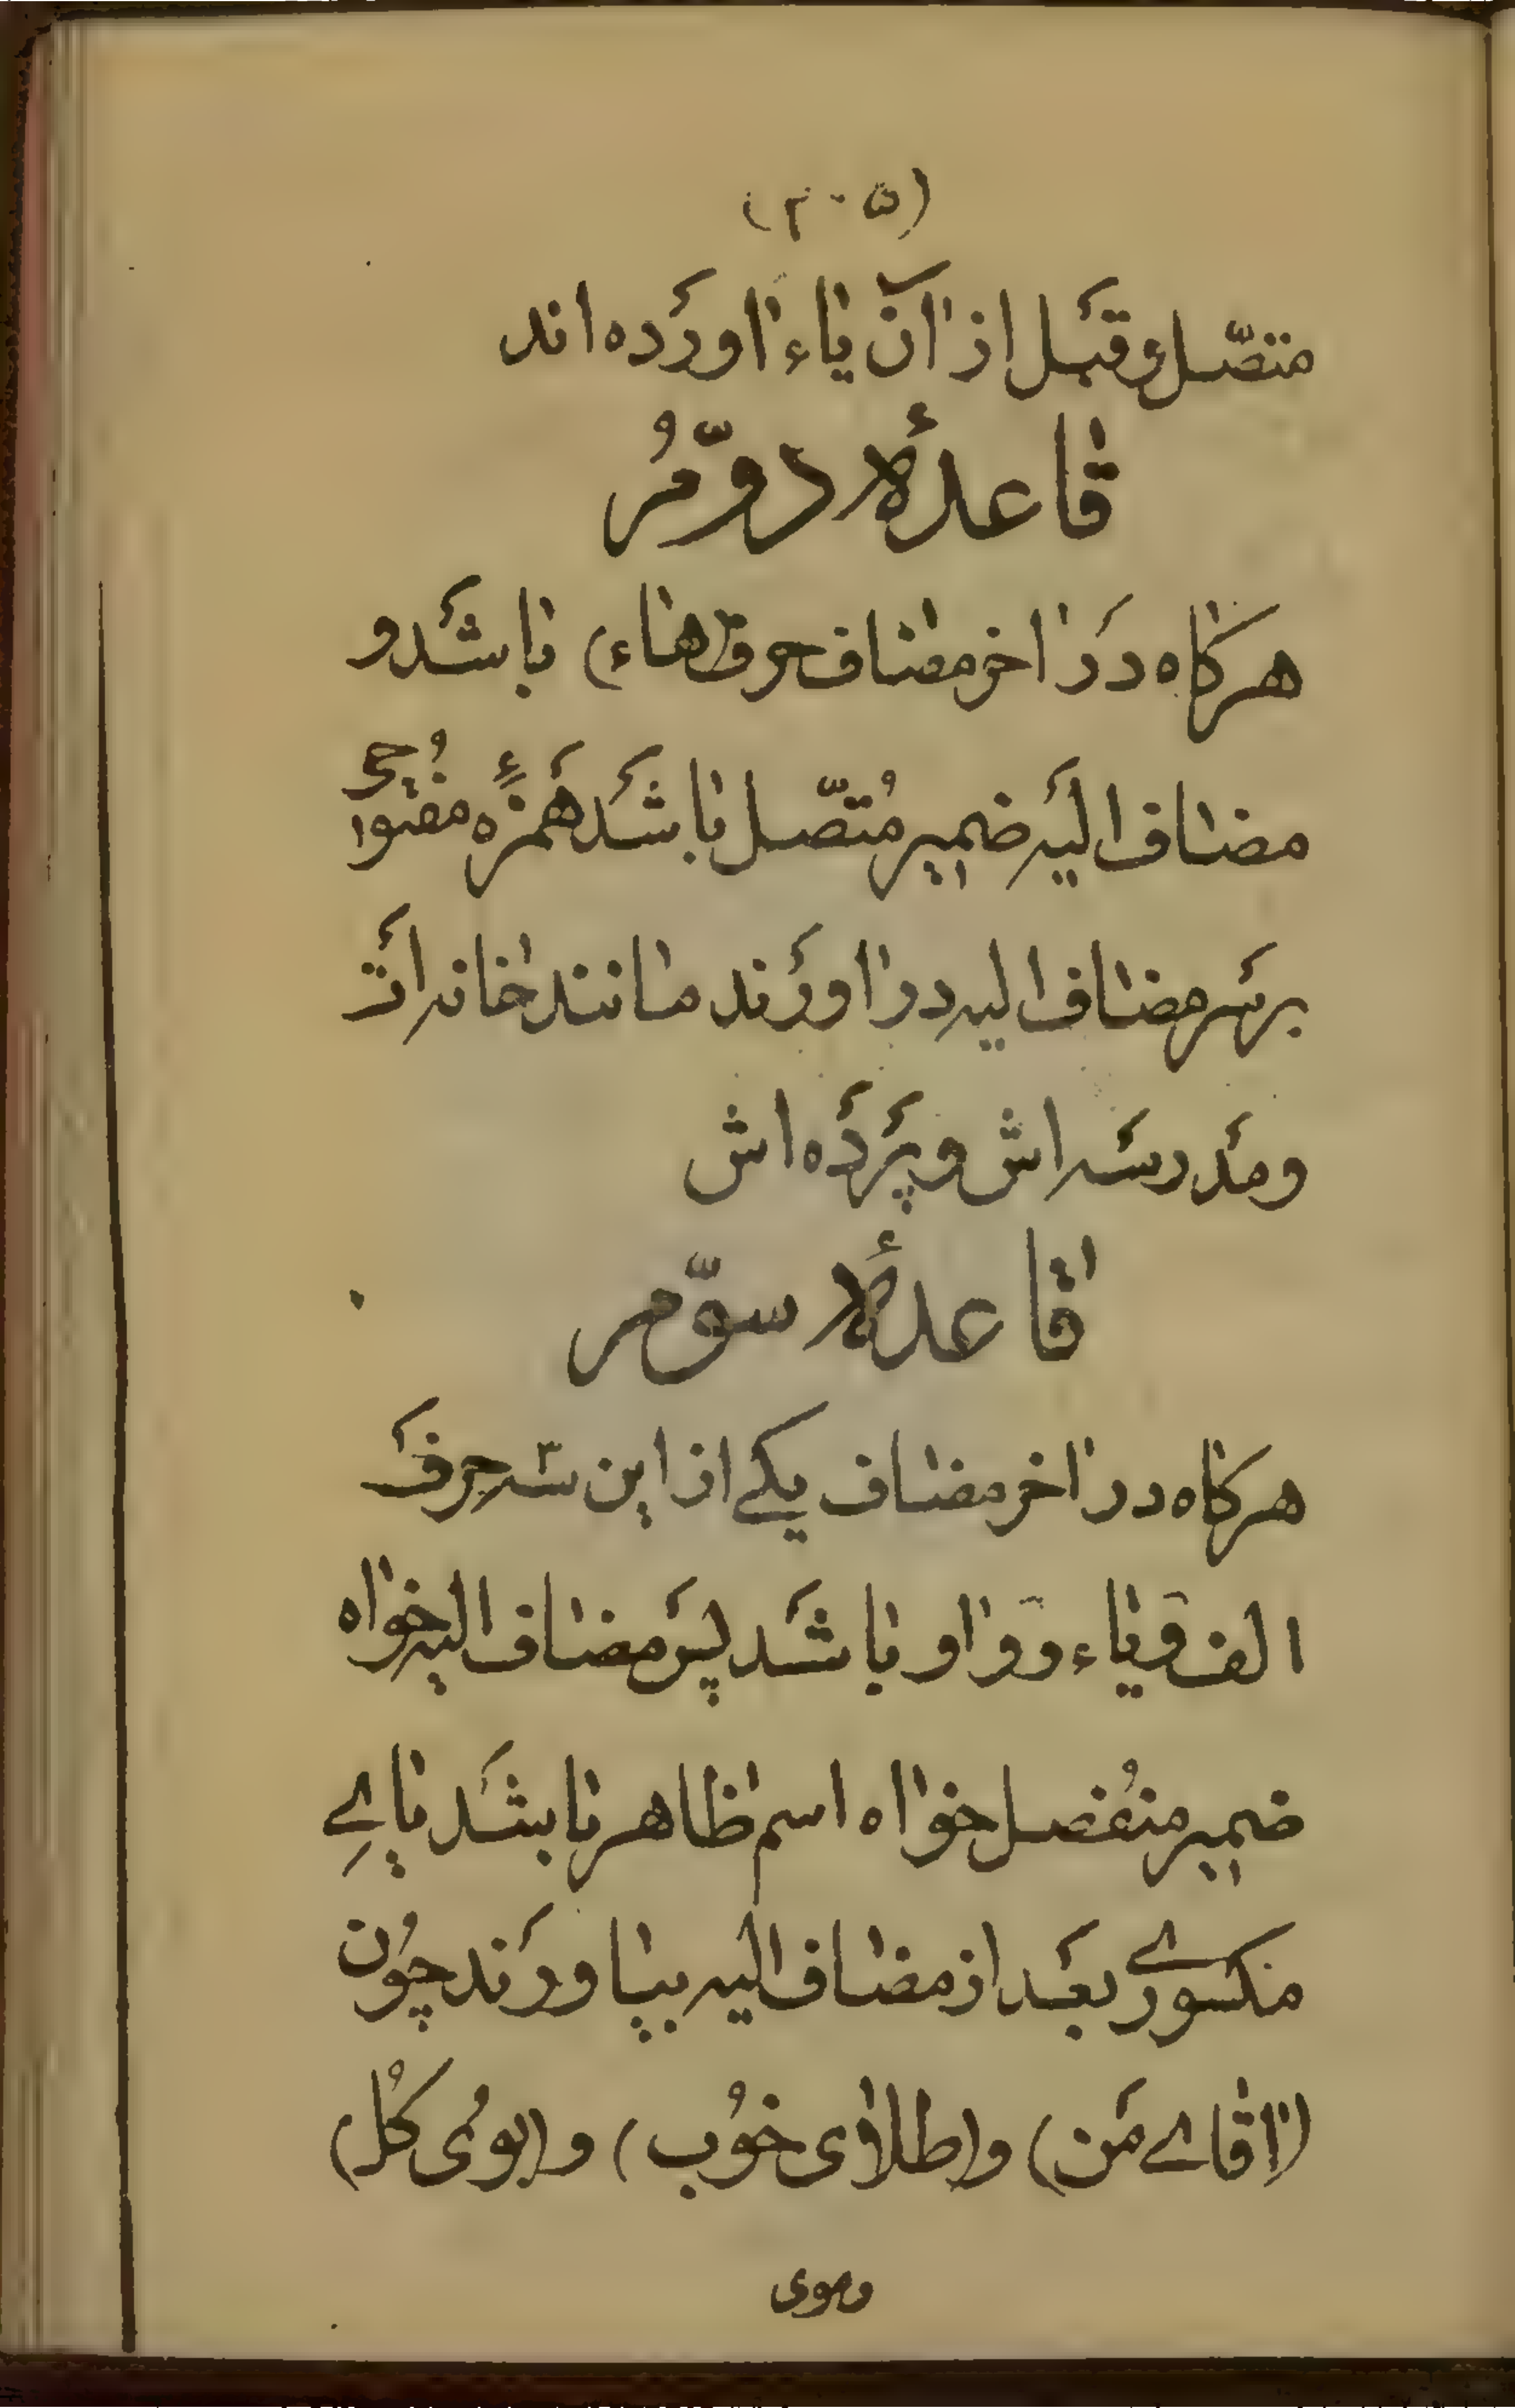 (۲۰۵)
متصّل و قبَل از آن یاء اورَده اند
قاعدهٔ دوّمُ
هرکاه دَر اخر مضاف حرف (هاء) باشَد و
مضاف الیَه ضمیر مُتصّل باشَد هَمزهٔ مفتوُحی
برسَر مضاف الیه در اورَند مانند خانه اَش
و مَدرسَه اش و پَردَه اش
قاعدهٔ سوّم
هرکاه در اخر مضاف یکے از این سه حرفَ
الف و یاء و واو باشَد پسَ مضاف الیه خواه
ضمیر منُفصل خواه اسم ظاهر باشَد یاےِ
مکسورے بعَد از مضاف الیه بیاورَند چوُن
(اقاے مَن) و (طلای خوُب) و (بوُی کُل)
وموی